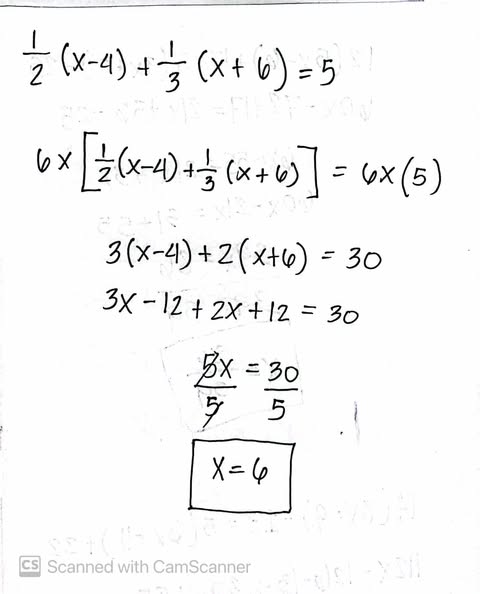 1/2 (x-4) + 1/3 (x+6) = 5
6 x [1/2 (x-4) + 1/3 (x+6)] = 6 x (5)
3(x-4) + 2(x+6) = 30
3x - 12 + 2x + 12 = 30
5x/5 = 30/5
x = 6
CS Scanned with CamScanner